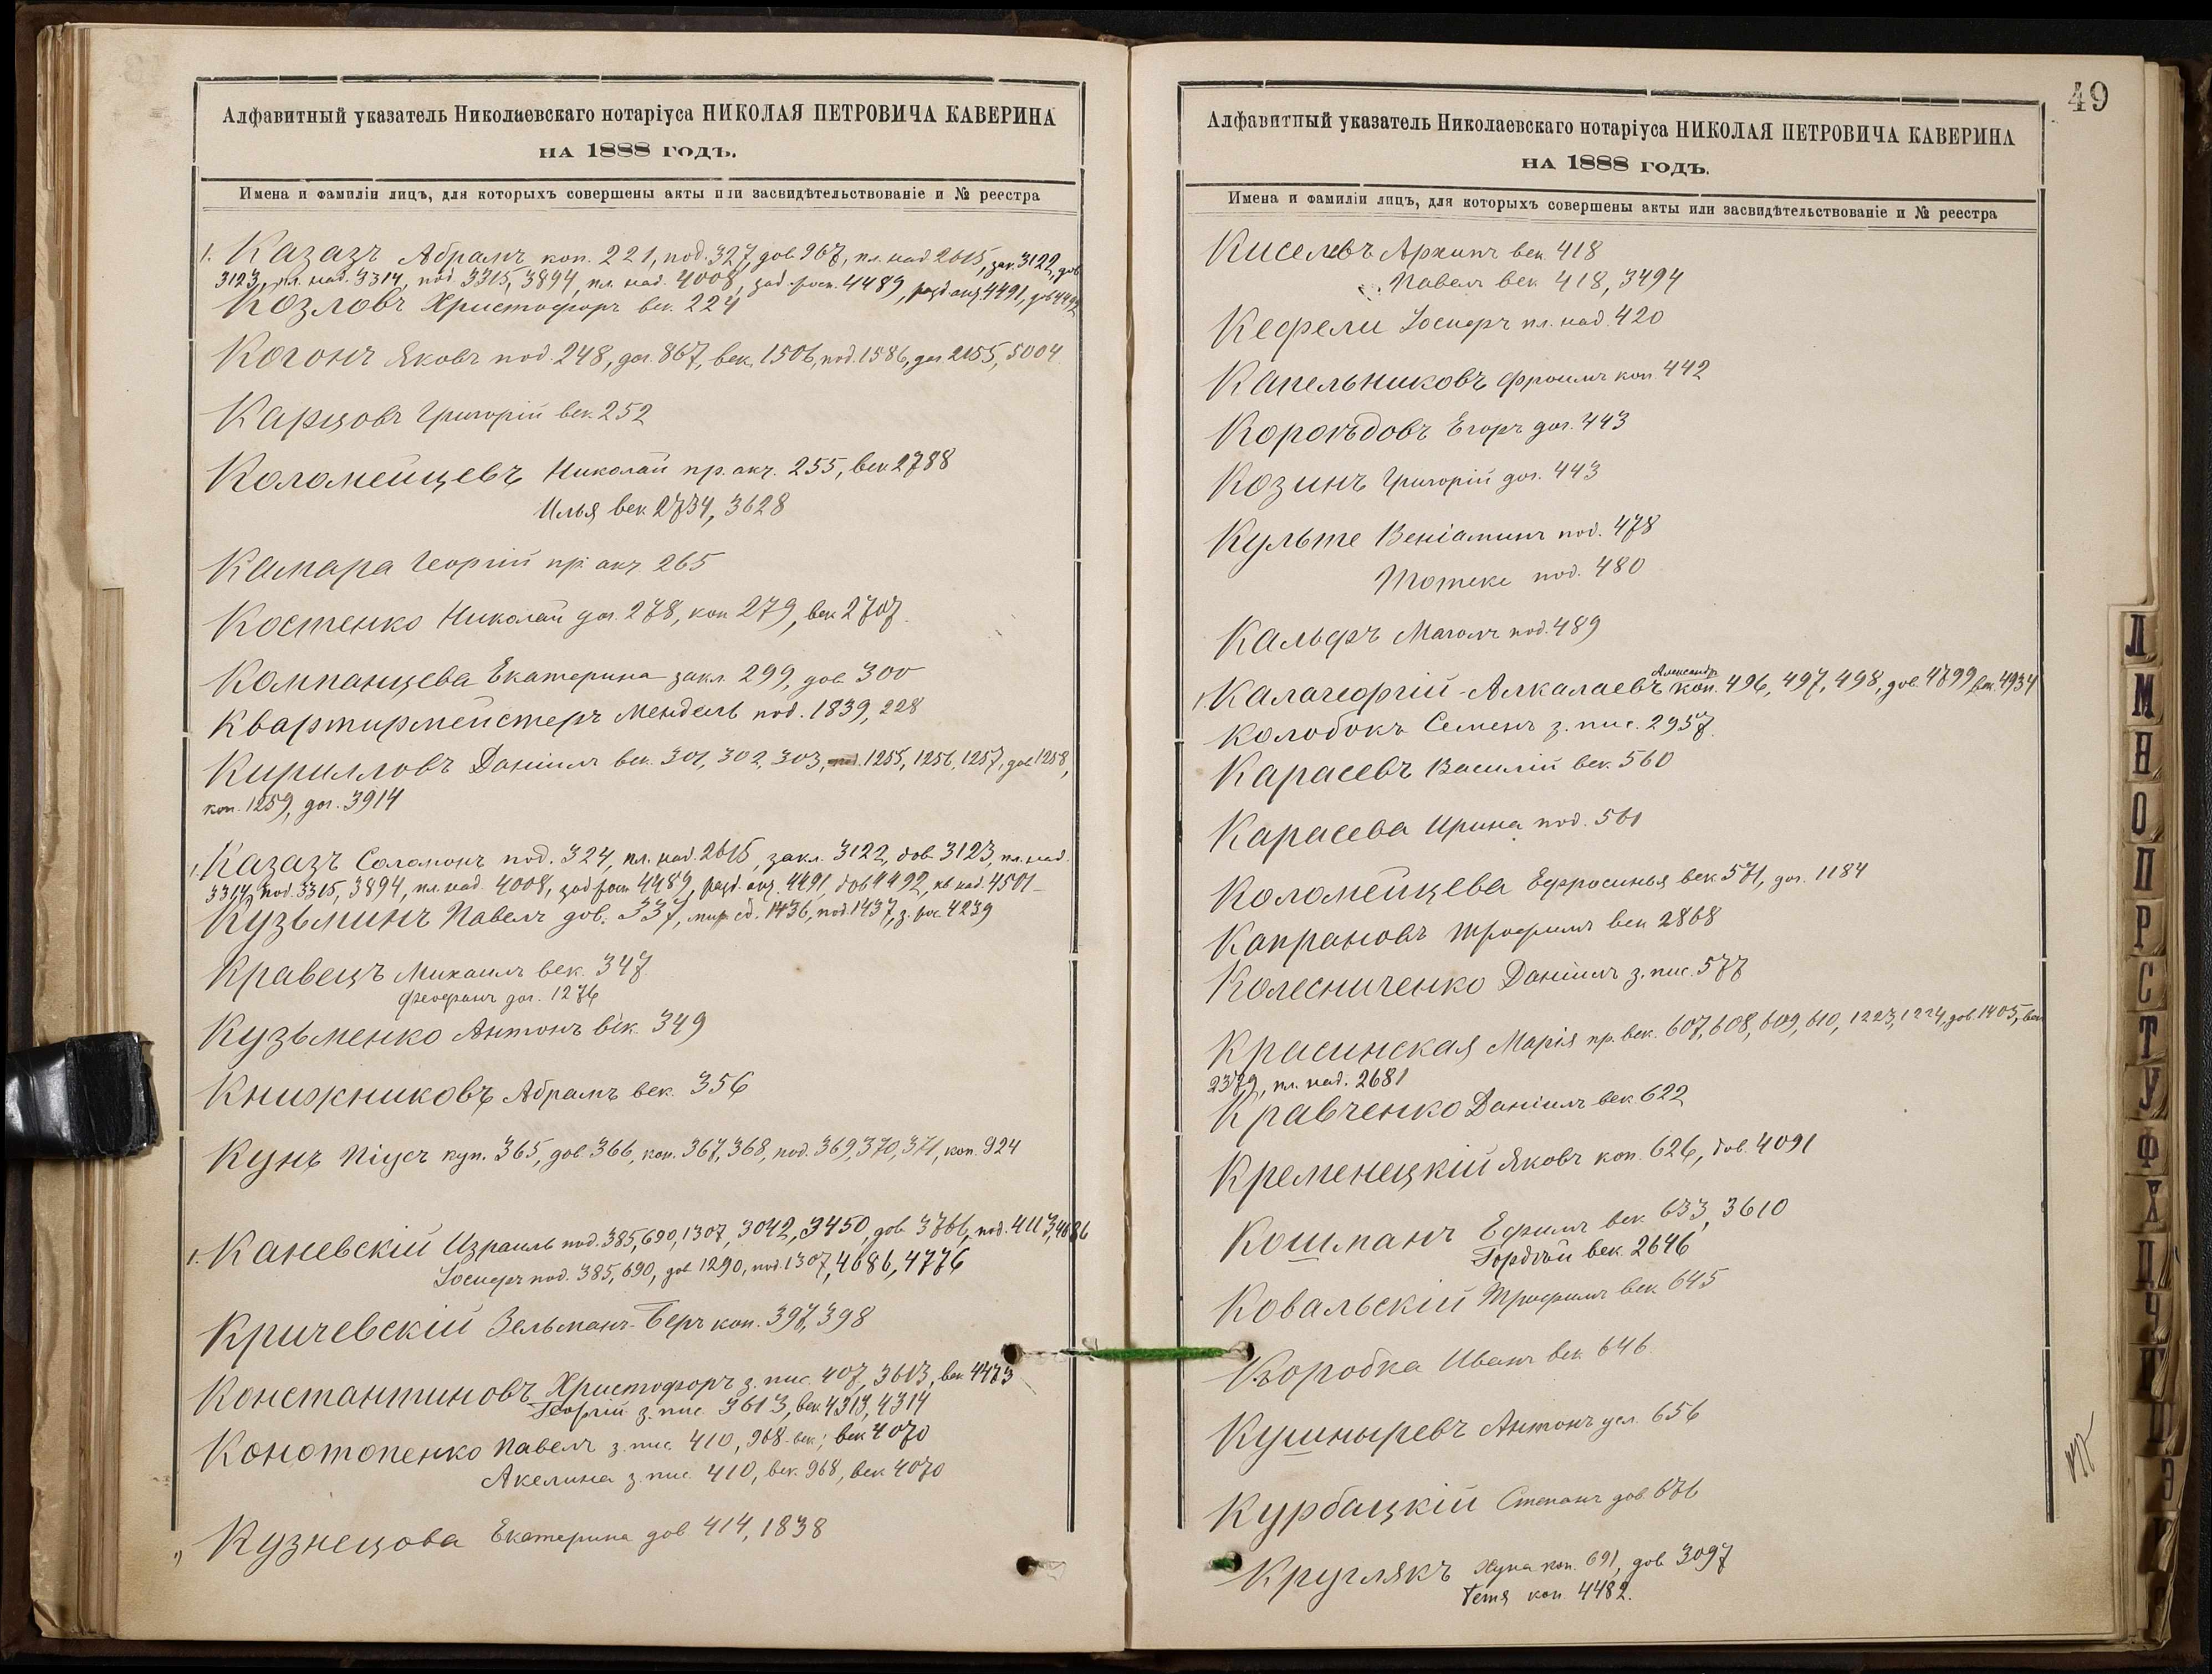 Алфавитный указатель Николаевскаго нотаріуса НИКОЛАЯ ПЕТРОВИЧА КАВЕРИНА
НА 1888 ГОДЪ.
Имена и фамиліи лицъ, для которыхъ совершены акты или засвидѣтельствованіе и № реестра
1. Казазъ Абрамъ коп. 221, под. 327, дов. 967, пл. над. 2615, зак. 3122, дов
3123, пл. над. 3314, под. 3315, 3894, пл. над. 4008, зад. росп. 4489, разд. акт 4491, дов 4492
Козловъ Христофоръ век. 224
Когонъ Яковъ под. 248, дог. 867, век. 1506, под. 1586, дог. 2155, 5004
Карцовъ Григорій век. 252
Коломейцевъ Николай пр. акт. 255, век 2788
Илья век 2734, 3628
Камара Георгій пр. акт 265
Костенко Николай дог. 278, коп 279, век 2707.
Компанцева Екатерина закл. 299, дов 300
Квартирмейстеръ Мендель под. 1839, 228
Кирилловъ Даніилъ век. 301, 302, 303, 1255, 1256, 1257, дов 1258,
коп. 1259, дог. 3914
1. Казазъ Соломонъ под. 324, пл. над. 2615, закл. 3122, дов. 3123, пл. над.
3314, под. 3315, 3894, пл. над. 4008, зад росп 4489, разд. акт. 4491, дов 4492, кв над. 4501
Кузьминъ Павелъ дов. 337, мир. сд. 1436, под. 1437, з. рос 4239
Кравецъ Михаилъ век. 347
Феофанъ дог. 1276
Кузьменко Антонъ век. 349
Книжниковъ Абрамъ век. 356
Кунъ Піусъ куп. 365, дов 366, коп. 367, 368, под. 369, 370, 371, коп. 924
1. Каневскій Израиль под. 385, 690, 1307, 3042, 3450, дов 3766, под. 4113, 4686
Іосифъ под. 385, 690, дов 1290, под. 1307, 4686, 4776
Кричевскій Зельманъ-Беръ коп. 397, 398
Константиновъ Христофоръ з. пис. 407, 3613, век 4473
Георгій з. пис. 3613, век. 4313, 4314
Конотопенко Павелъ з. пис. 410, 968 век; век 4070
Акелина з. пис. 410, век. 968, век 4070
Кузнецова Екатерина дов 414, 1838
49
Алфавитный указатель Николаевскаго нотаріуса НИКОЛАЯ ПЕТРОВИЧА КАВЕРИНА
НА 1888 ГОДЪ.
Имена и фамиліи лицъ, для которыхъ совершены акты или засвидѣтельствованіе и № реестра
Киселевъ Архипъ век. 418
Павелъ век 418, 3494
Кефели Іосифъ пл. над. 420
Капельниковъ Фроимъ коп. 442
Короѣдовъ Егоръ дог. 443
Козинъ Григорій дог. 443
Культе Веніаминъ под. 478
под. 480
Кальфъ под. 489
Александръ
1. Калагеоргій-Алкалаевъ коп. 496, 497, 498, дов. 4799, век. 4934
Колобокъ Семенъ з. пис. 2957.
Карасевъ Василій век. 560
Карасева Ирина под. 561
Коломейцева Ефросинья век 571, дог. 1184
Капрановъ Трофимъ век 2868
Колесниченко Даніилъ з. пис. 577
Красинская Марія пр. век. 607, 608, 609, 610, 1223, 1224, дов 1405, век
2379, пл. над. 2681
Кравченко Даніилъ век 622
Кременецкій Яковъ коп. 626, дов. 4091
Кошманъ Ефимъ век 633, 3610
Гордѣй век. 2646
Ковальскій Трофимъ век 645
Коробка Иванъ век 646
Кушныревъ Антонъ усл. 656
Курбацкій Степанъ дов 676
Круглякъ Хуна коп. 691, дов 3097
Гетя коп. 4482.
Л
М
Н
О
П
Р
С
Т
У
Ф
Х
Ц
Ч